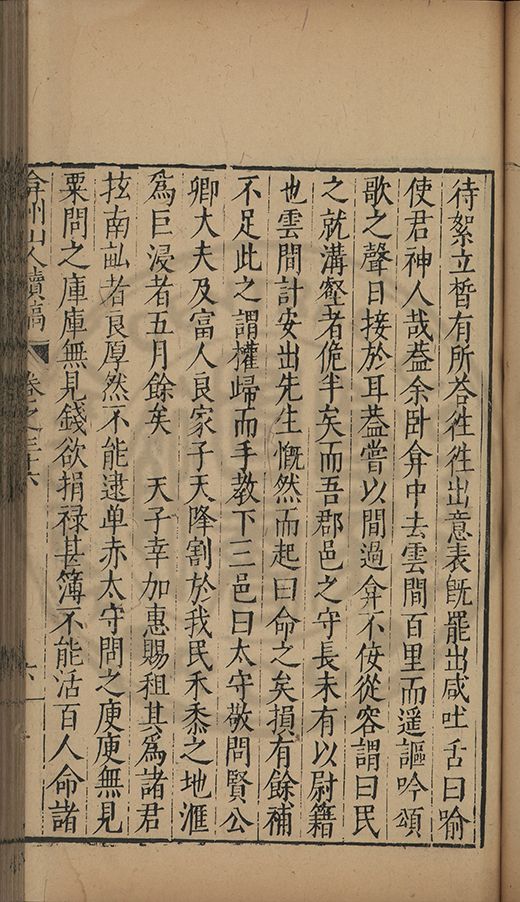 待絮立皙有所荅徃徃出意表旣罷出咸吐舌曰喻
使君神人哉葢余卧弇中去雲間百里而遥謳吟頌
歌之聲日接於耳葢嘗以間過弇不佞從容謂曰民
之就溝壑者俛半矣而吾郡邑之守長未有以尉籍
也雲間計安出先生慨然而起曰命之矣損有餘補
不足此之謂權歸而手教下三邑曰太守敬問賢公
卿大夫及富人良家子天降割於我民禾黍之地滙
爲巨浸者五月餘矣 天子幸加惠賜租其爲諸君
㧋南畝者良厚然不能逮单赤太守問之庾庾無見
粟問之庫庫無見錢欲捐禄甚簿不能活百人命諸
弇州山人續稿 卷之三十六 六